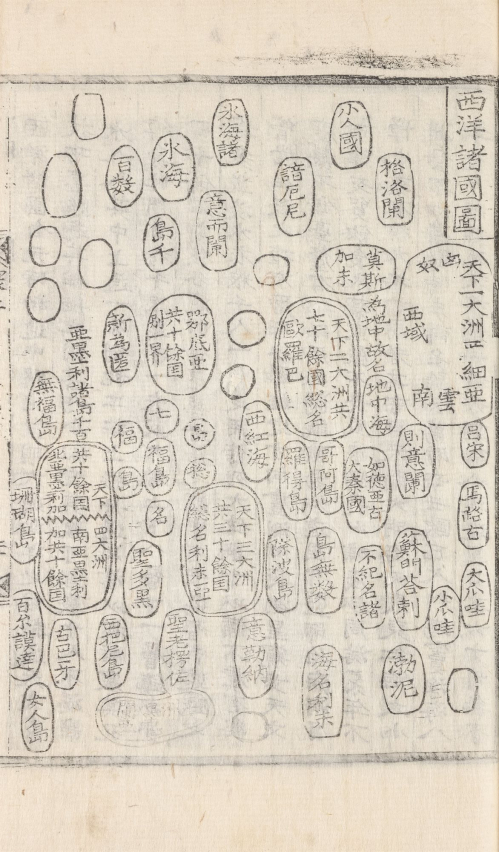 西洋諸國圖
天下一大洲曰細亞
西域
雲南
呂宋
馬路古
大爪哇
小爪哇
格洛闌
莫斯
加未
為地中故名地中海
則意闌
蘇門答剌
渤泥
小人國
諳厄尼
天下二大洲共
七十餘國総名
歐羅巴
如德亞古
大秦國
不紀名諸
哥阿島
羅得島
島無数
海名利未
氷海諸
意而闌
西紅海
天下三大洲
共三十餘国
総名利未亞
條波島
意勒納
氷海
島千
百数
鄂底亜
共十餘国
別一界
新為匿
七
島
福島
福
島
総
名
聖多黒
聖老楞佐
亜墨利諸島千百
無福島
天下四大洲
共十餘国
南亜墨利
北亜墨利加
加共十餘国
珊瑚島
百尓謨達
古巴
女人島